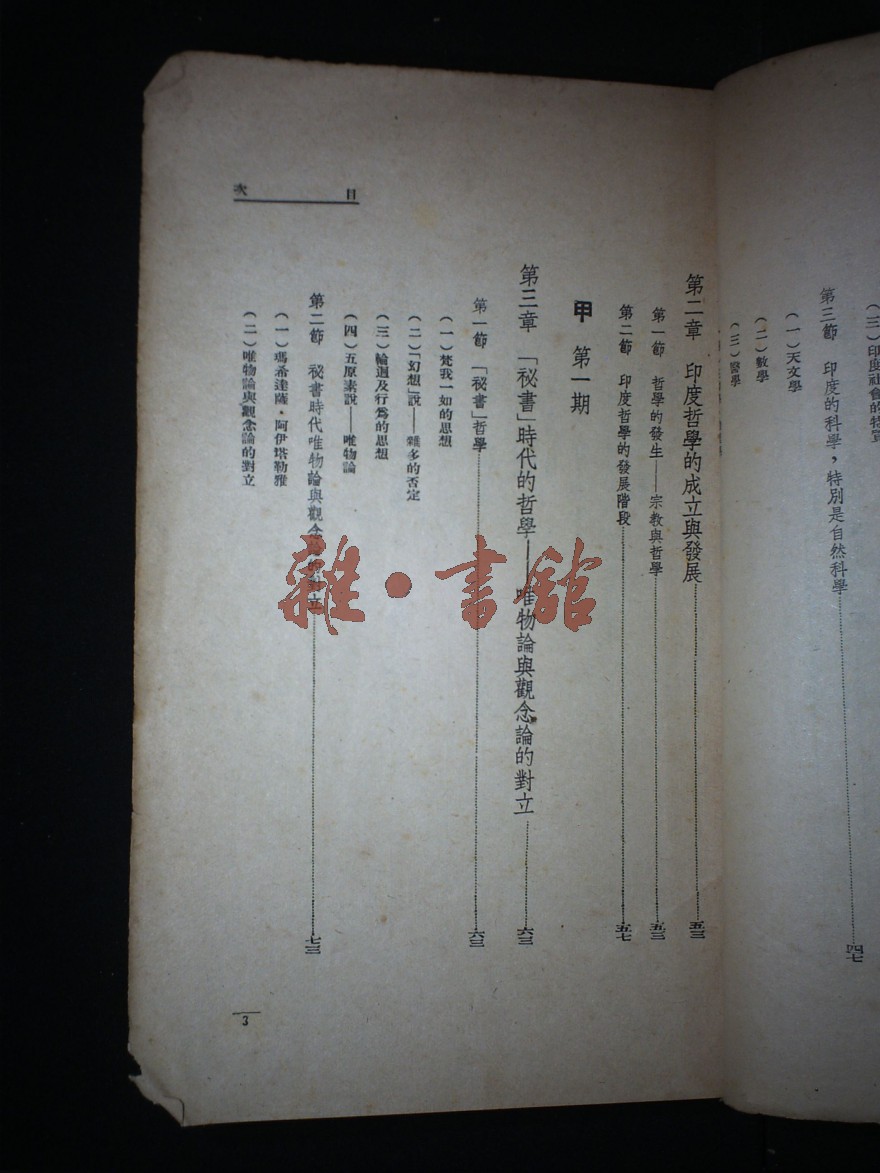 （三）印度社會的特質
第三節　印度的科學，特別是自然科學……四七
（一）天文學
（二）數學
（三）醫學
第二章　印度哲學的成立與發展……五三
第一節　哲學的發生——宗教與哲學……五三
第二節　印度哲學的發展階段……五七
甲　第一期
第三章　「祕書」時代的哲學——唯物論與觀念論的對立……六三
第一節　「祕書」哲學……六三
（一）梵我一如的思想
（二）「幻想」說——雜多的否定
（三）輪迴及行爲的思想
（四）五原素說——唯物論
第二節　祕書時代唯物論與觀念論的對立……七三
（一）瑪希達薩・阿伊塔勒雅
（二）唯物論與觀念論的對立
目次
3
雜・書舘